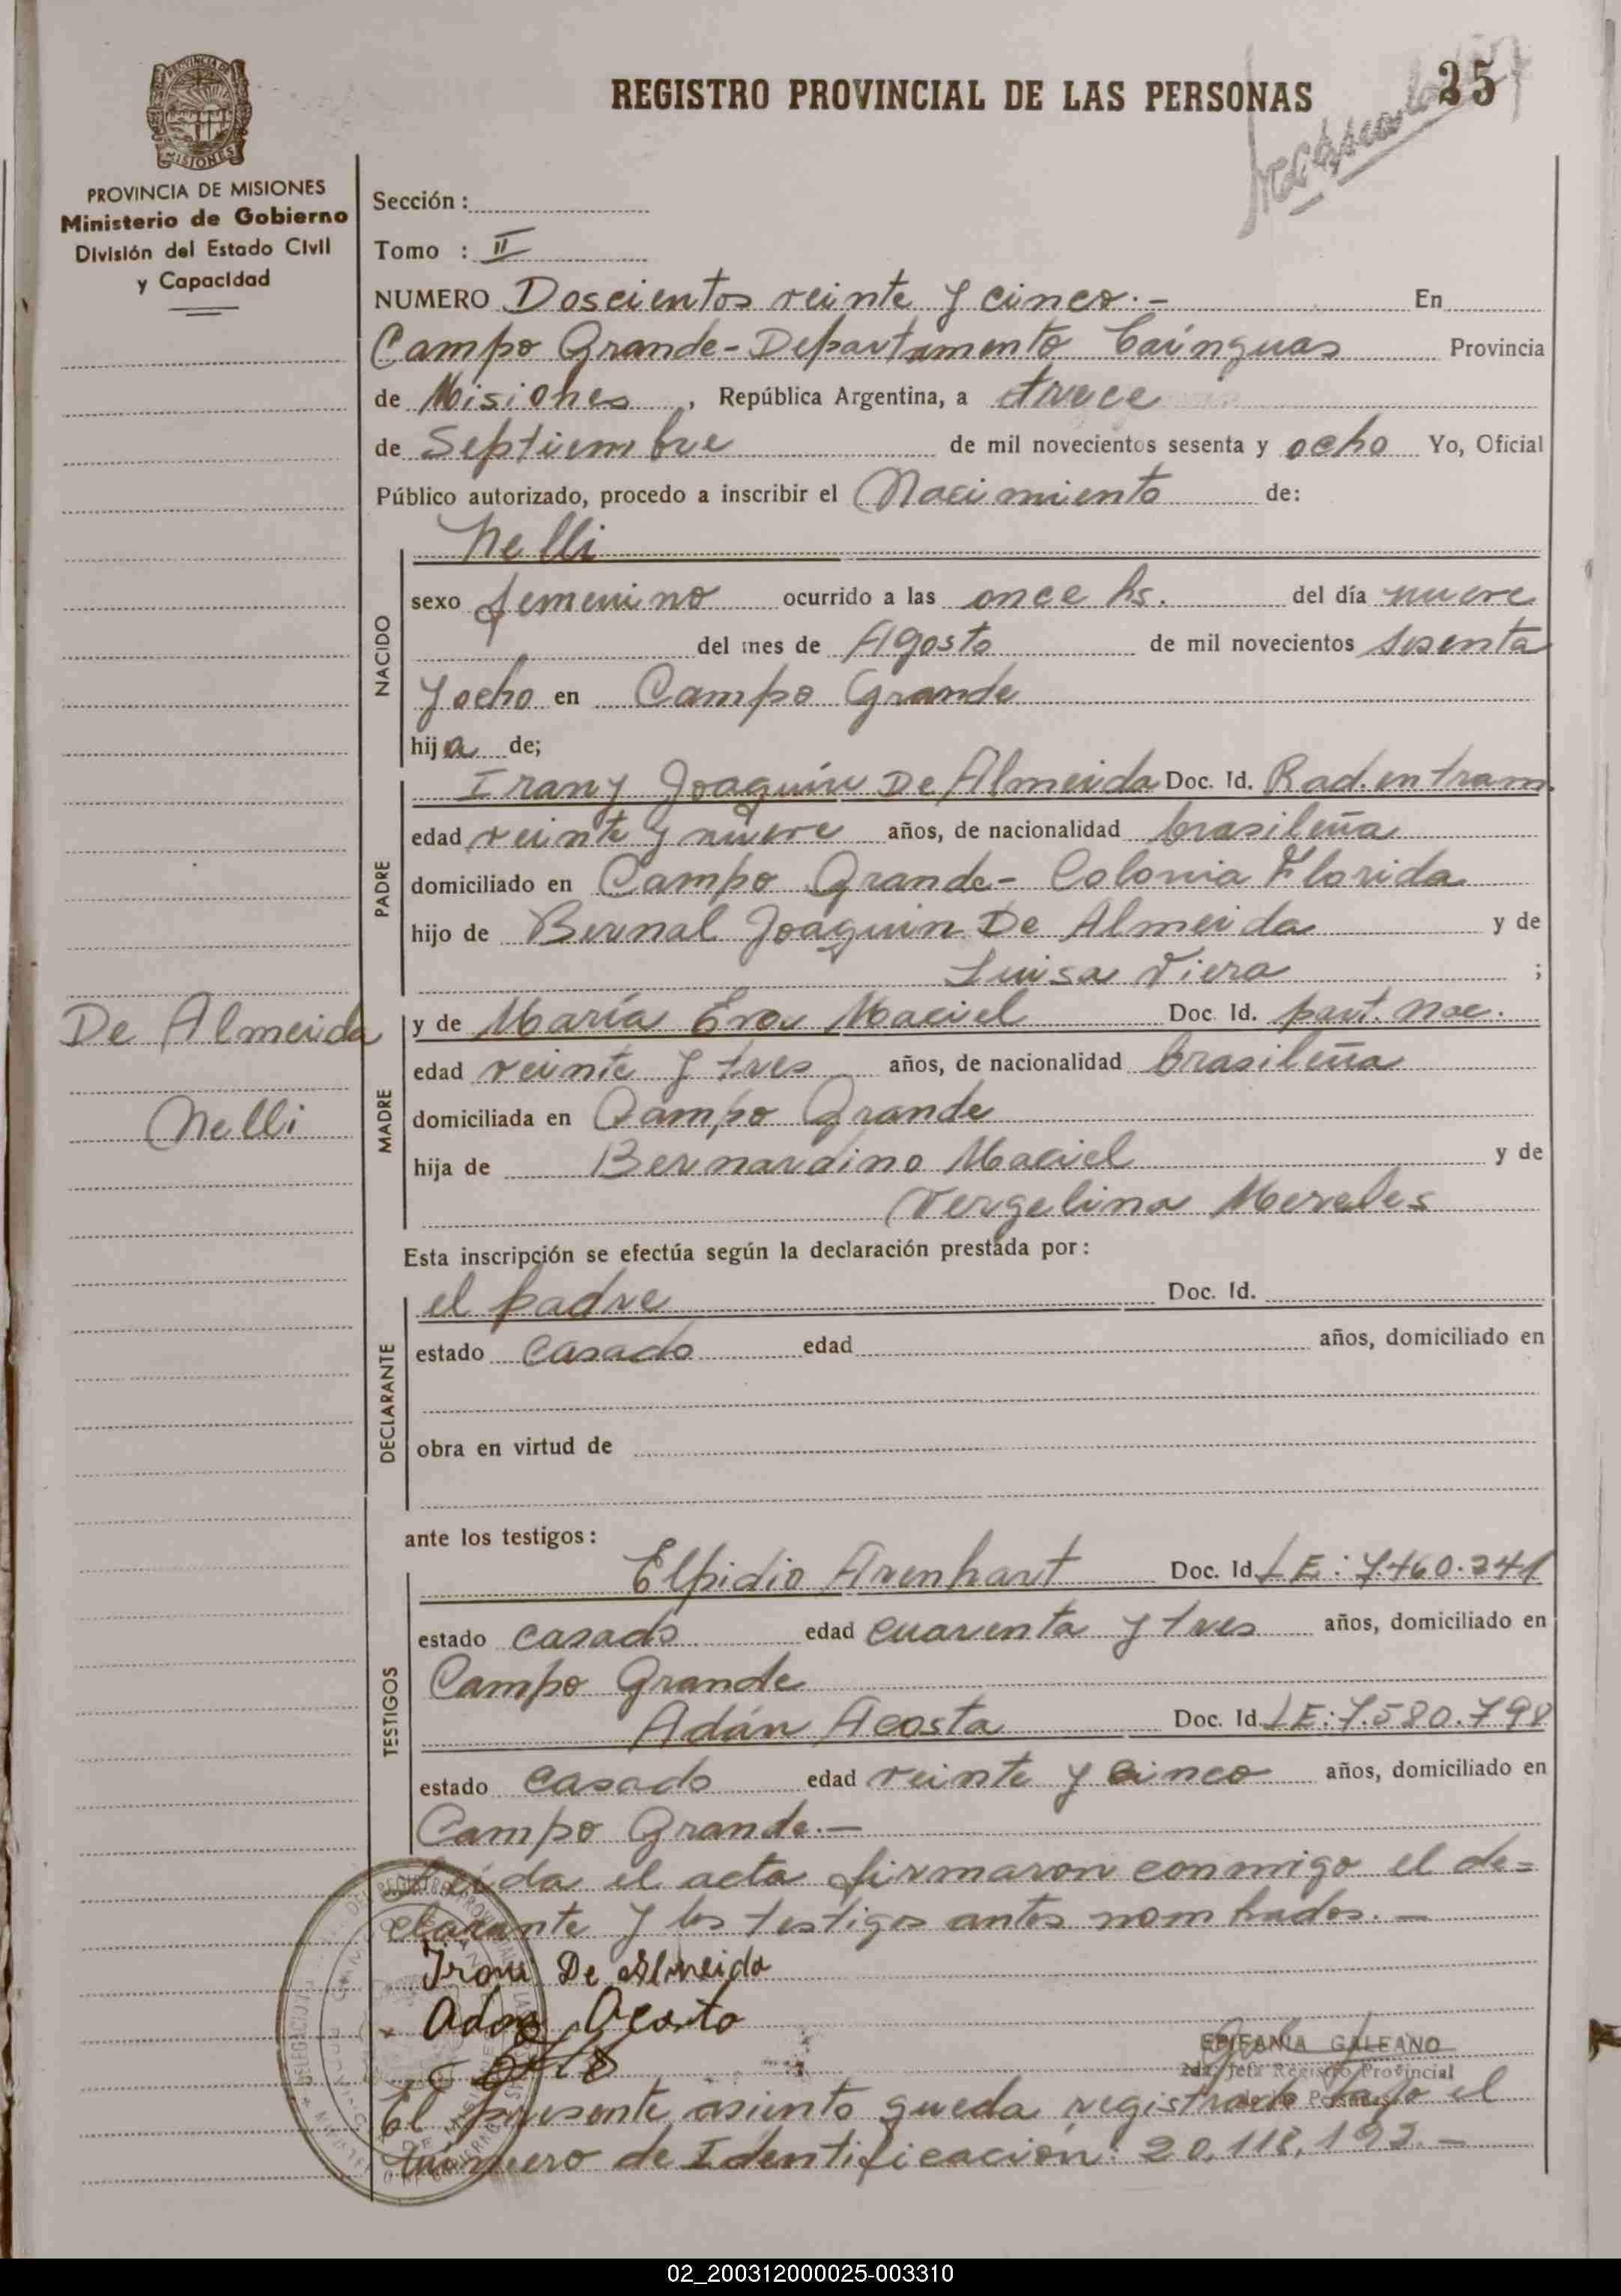 REGISTRO PROVINCIAL DE LAS PERSONAS
25
PROVINCIA DE MISIONES
Ministerio de Gobierno
División del Estado Civil
y Capacidad
Sección :
Tomo : II
NUMERO Doscientos veinte y cinco.- En
Campo Grande-Departamento Cainguas Provincia
de Misiones, República Argentina, a trece
de Septiembre de mil novecientos sesenta y ocho Yo, Oficial
Público autorizado, procedo a inscribir el Nacimiento de:
NACIDO
Nelli
sexo femenino ocurrido a las once hs. del día nueve
del mes de Agosto de mil novecientos sesenta
y ocho en Campo Grande
hija de;
PADRE
Irany Joaquín De Almeida Doc. Id. Rad. en tram.
edad veinte y nueve años, de nacionalidad brasileña
domiciliado en Campo Grande- Colonia Florida
hijo de Bernal Joaquin De Almeida y de
Luisa Viera ;
De Almeida
Nelli
MADRE
y de María Eva Maciel Doc Id. part. nac.
edad veinte y tres años, de nacionalidad brasileña
domiciliada en Campo Grande
hija de Bernardino Maciel y de
Vergelina Mereles
Esta inscripción se efectúa según la declaración prestada por :
DECLARANTE
el padre Doc. Id.
estado casado edad años, domiciliado en
obra en virtud de
ante los testigos :
TESTIGOS
Elpidio Arenhart Doc. Id LE: 7.460.241
estado casado edad cuarenta y tres años, domiciliado en
Campo Grande
Adán Acosta Doc. Id. LE: 7.580.798
estado casado edad veinte y cinco años, domiciliado en
Campo Grande.-
Leida el acta firmaron conmigo el de=
clarante y los testigos antes nombrados.-
Irani De Almeida
Adan Acosta
EPIFANIA GALEANO
2da. Jefa Registro Provincial
de las Personas
El presente asiento queda registrado bajo el
número de Identificación: 20.118.193.-
02_200312000025-003310